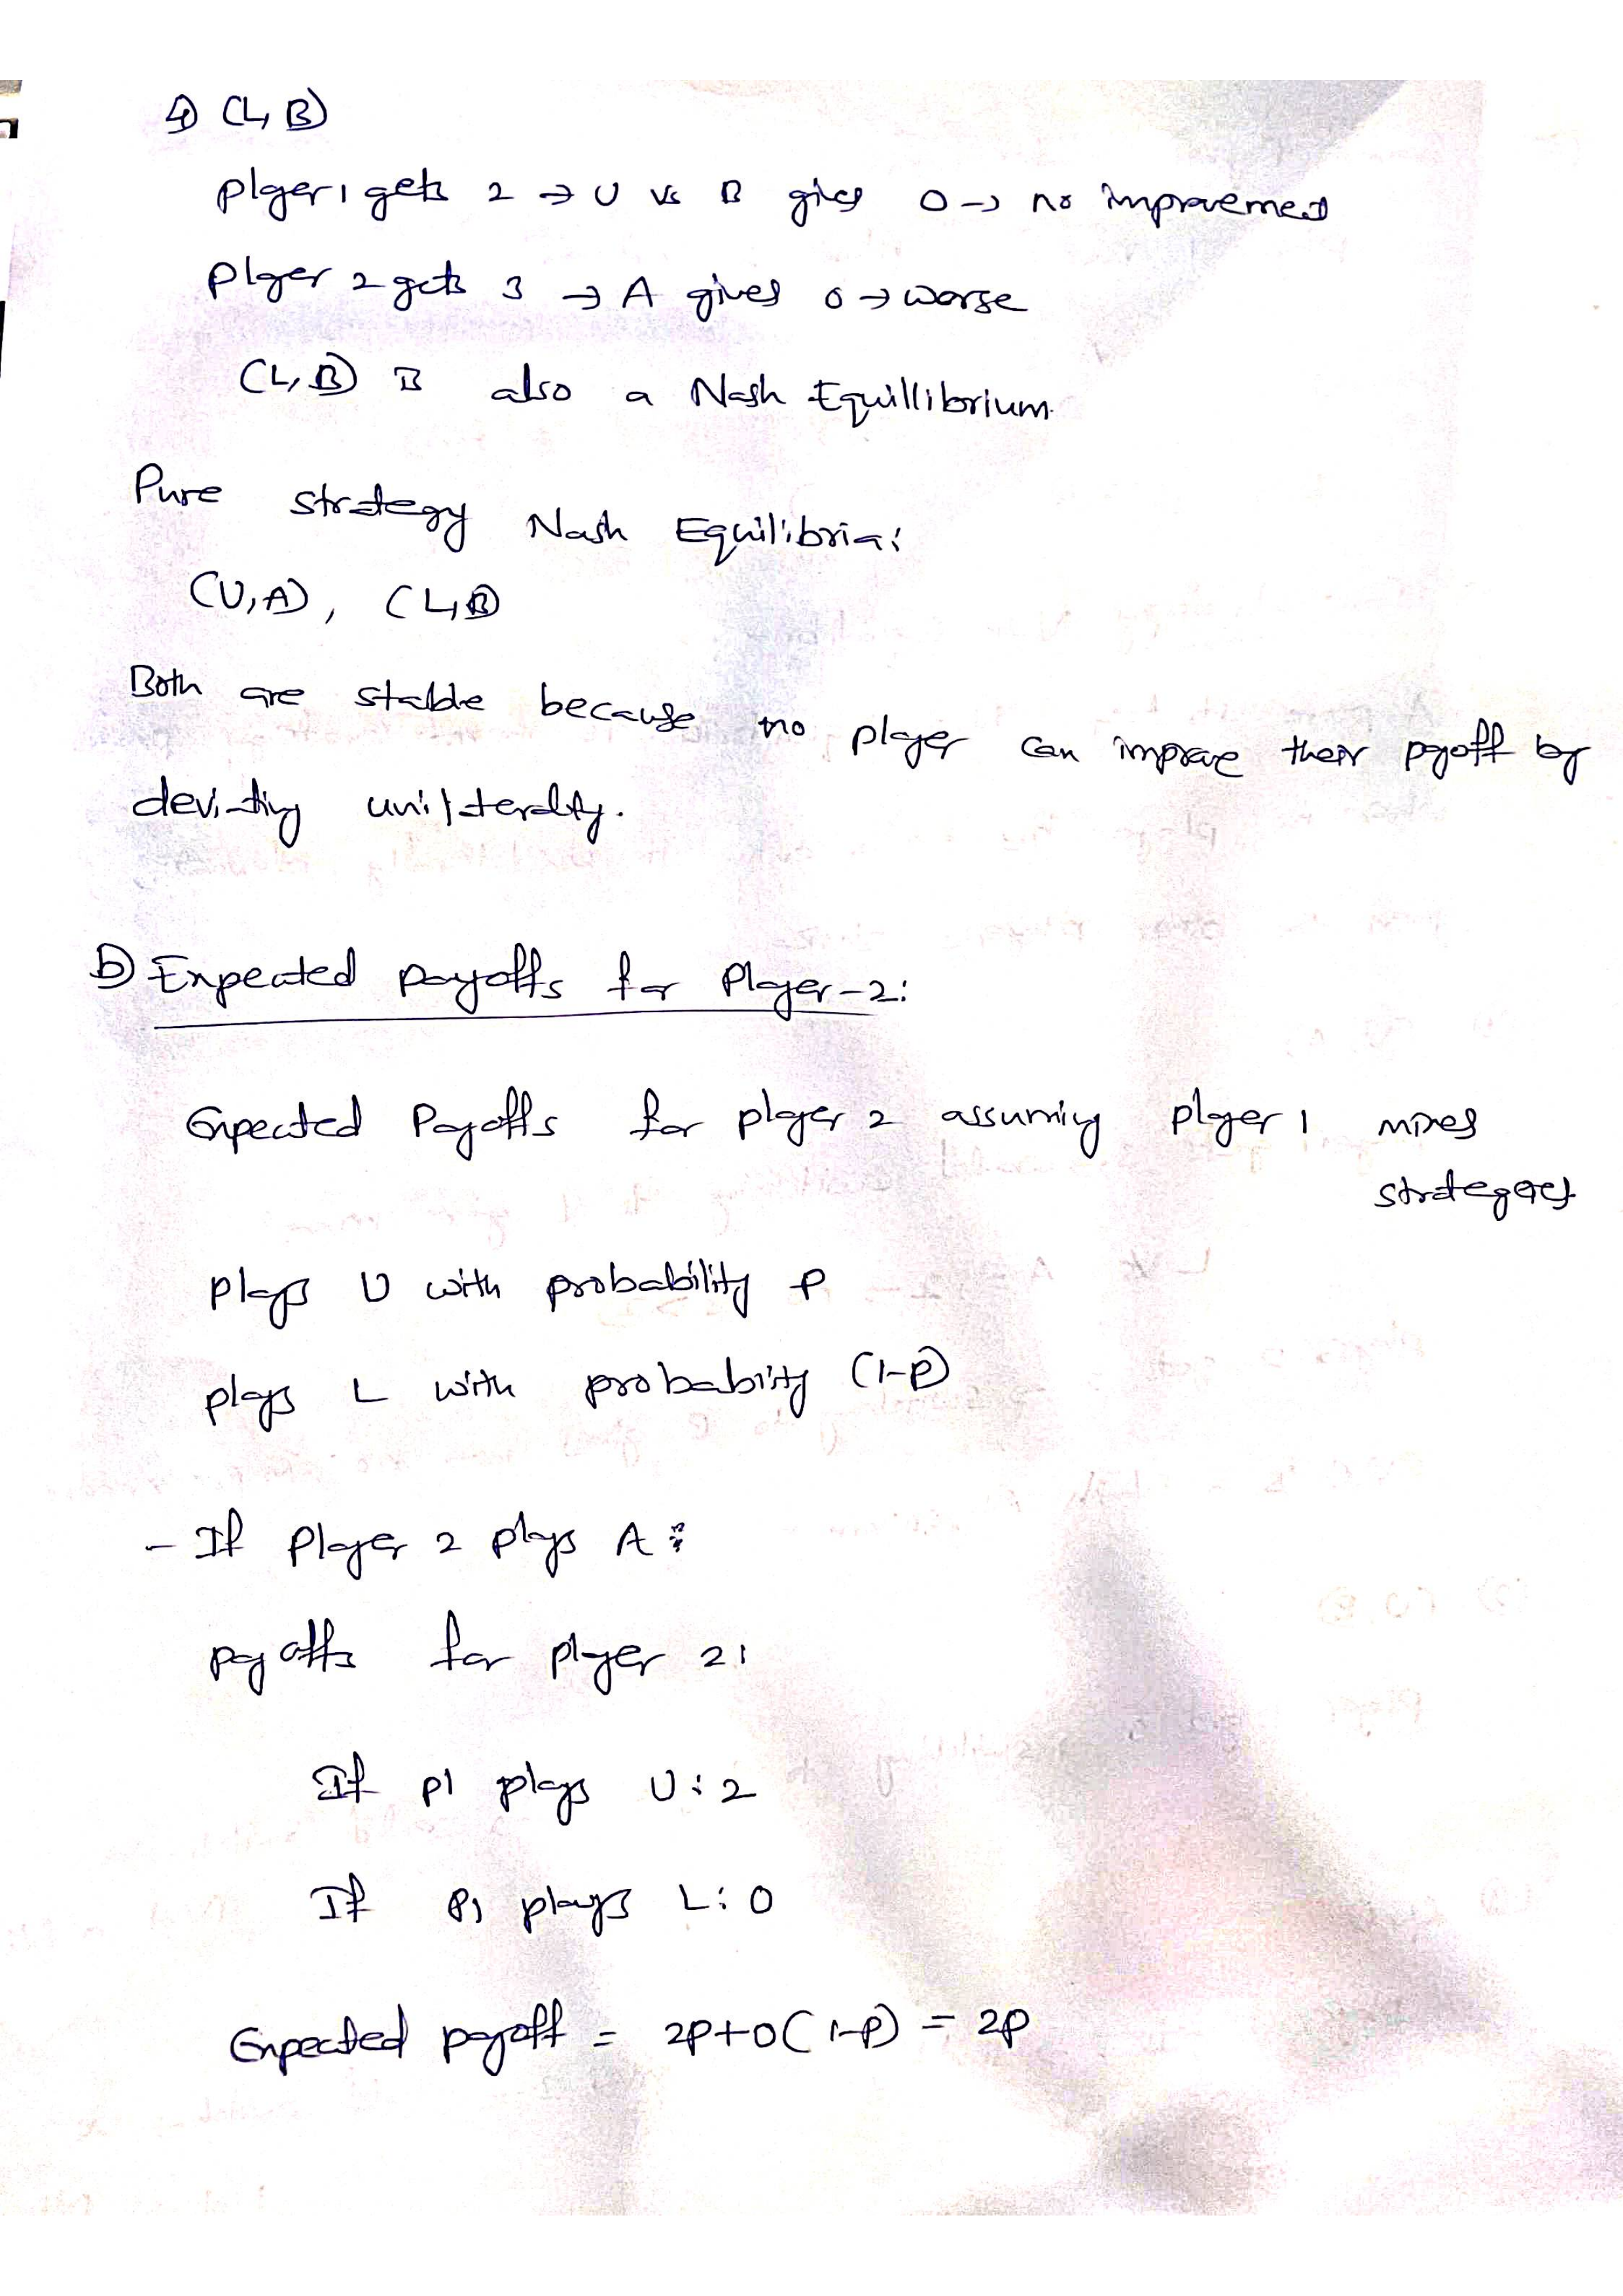 4) (L, B)
player 1 gets 2 → U vs B gives 0 → no improvement
player 2 gets 3 → A gives 0 → worse
(L, B) is also a Nash Equillibrium.
Pure strategy Nash Equilibria:
(U, A), (L, B)
Both are stable because no player can improve their payoff by
deviating unilaterally.
b) Expected payoffs for Player-2:
Expected Payoffs for player 2 assuming player 1 mixes
strategies
plays U with probability P
plays L with probability (1-P)
- If player 2 plays A:
payoffs for player 2:
If P1 plays U: 2
If P1 plays L: 0
Expected payoff = 2P+0(1-P) = 2P